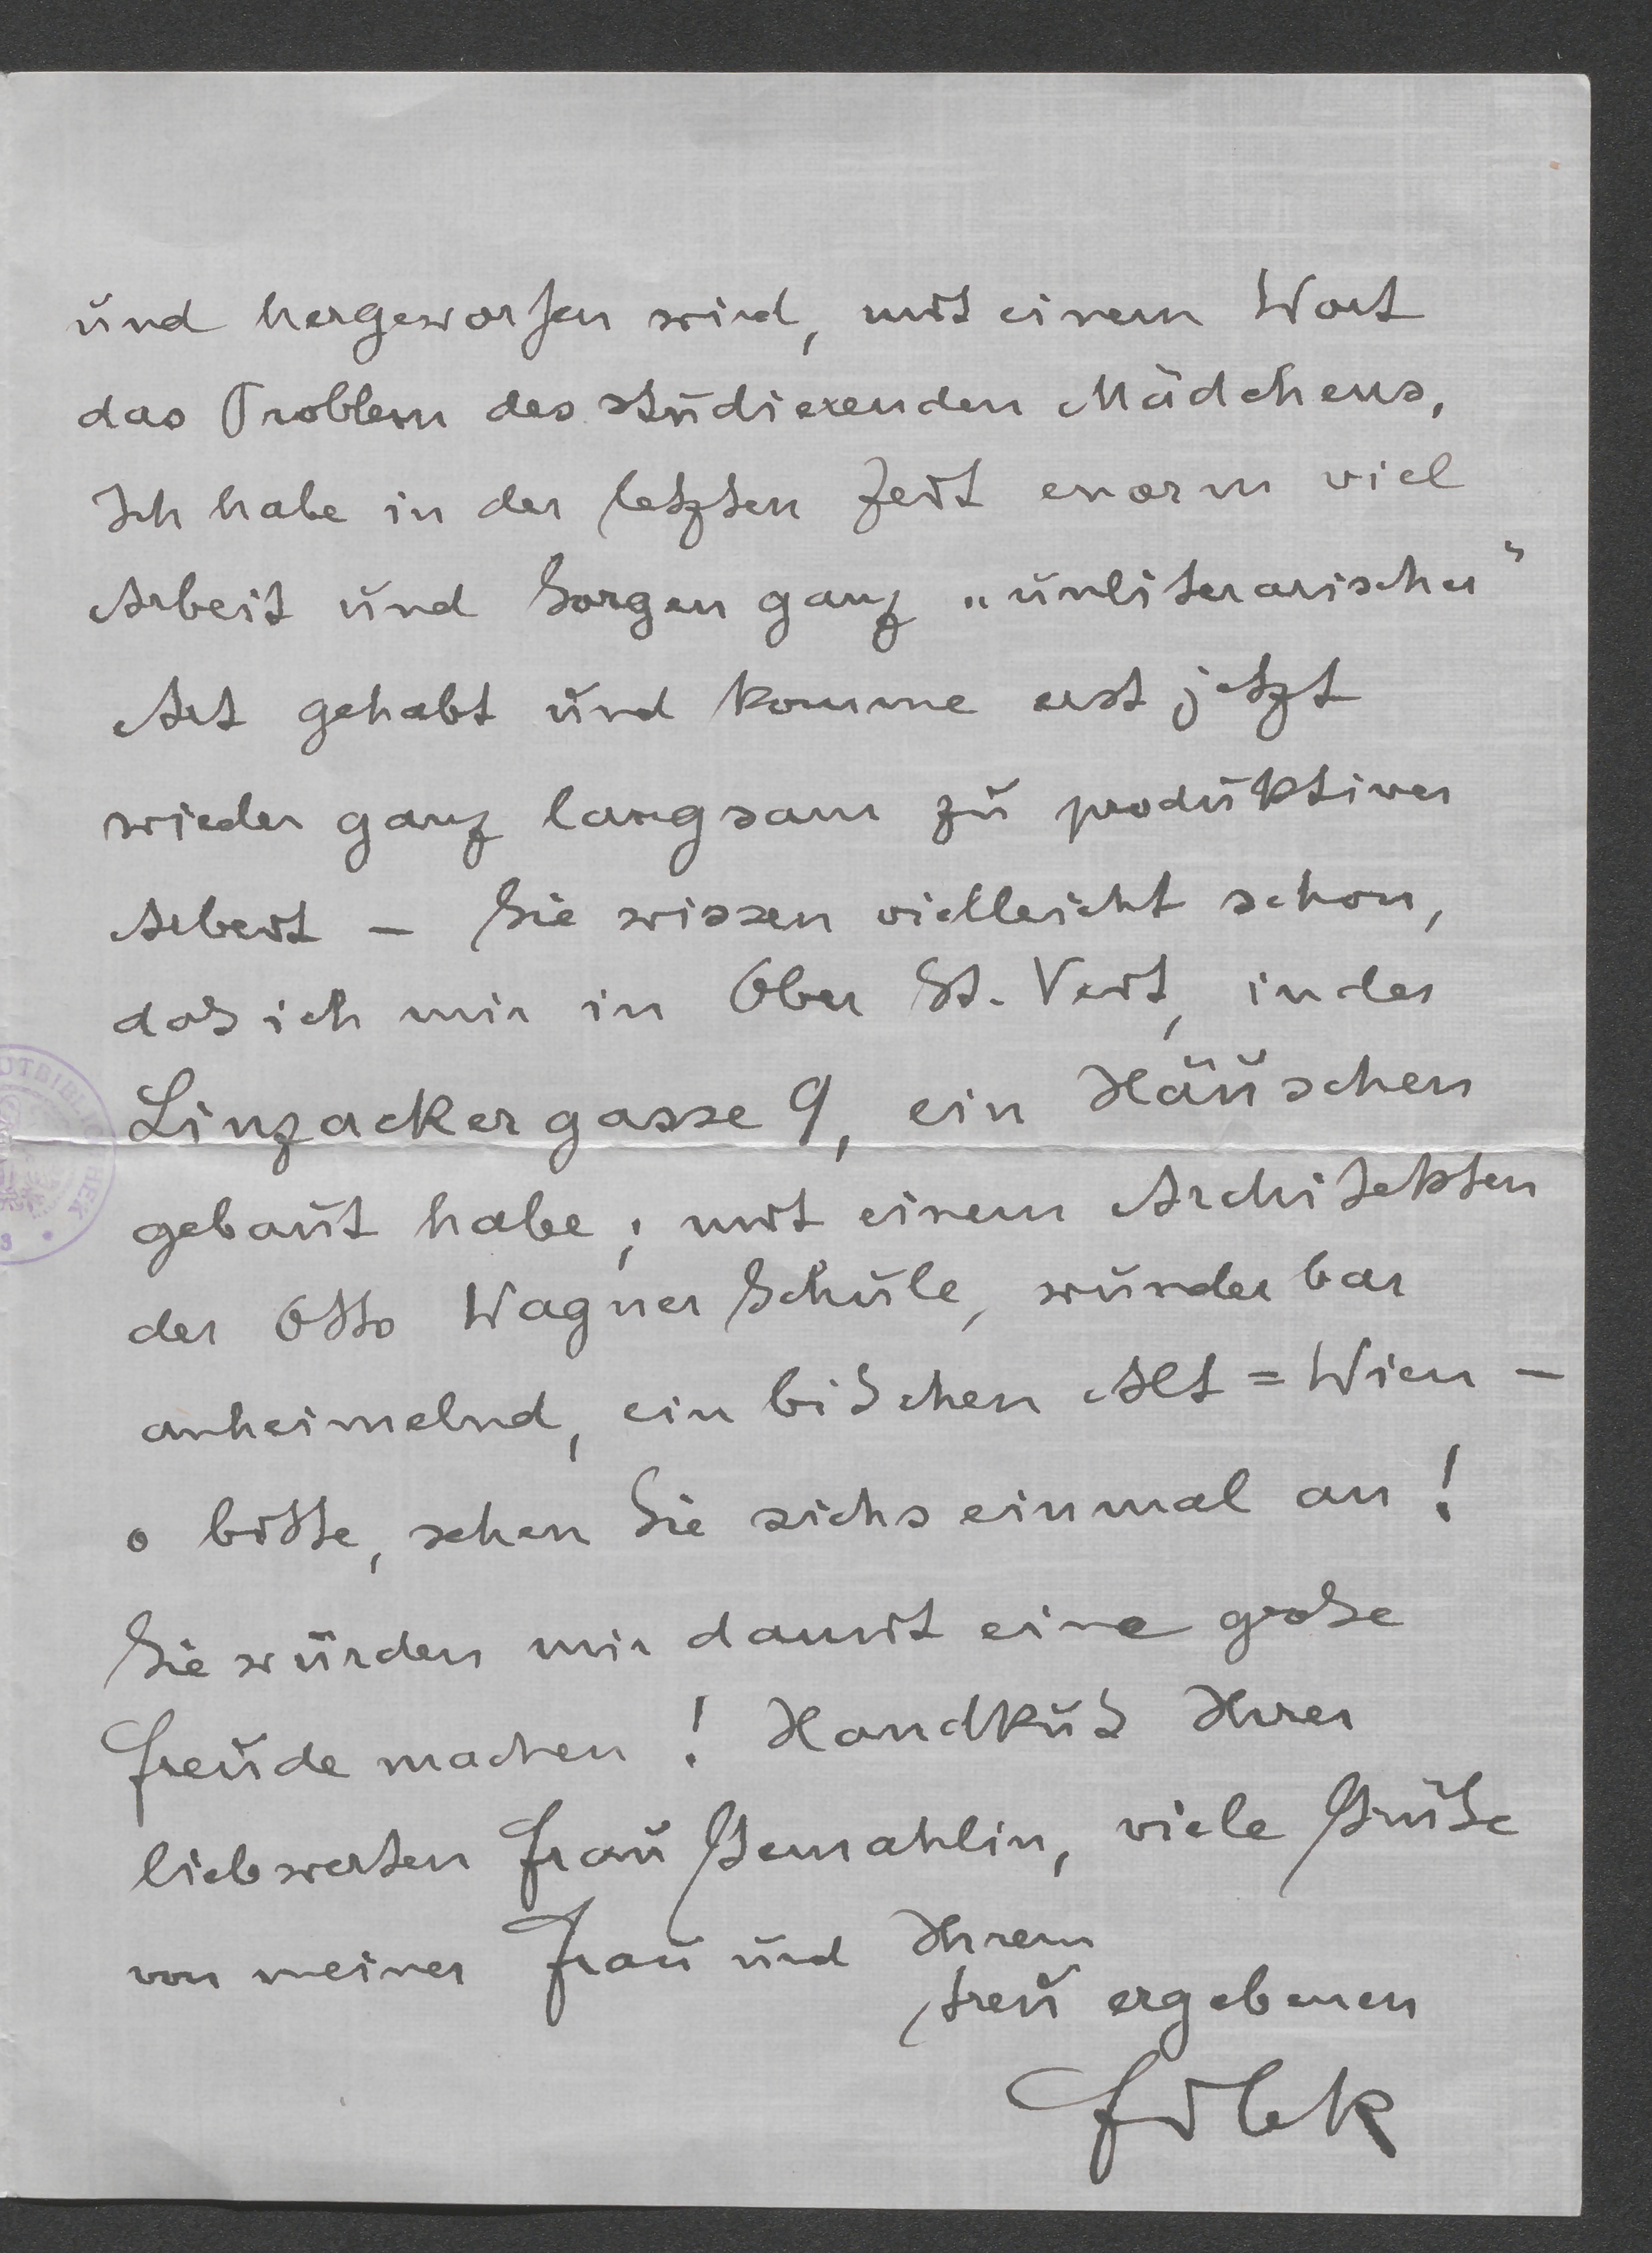 und hergeworfen wird, mit einem Wort
das Problem des studierenden Mädchens.
Ich habe in der letzten Zeit enorm viel
Arbeit und Sorgen ganz „unliterarischer"
Art gehabt und komme erst jetzt
wieder ganz langsam zu produktiver
Arbeit – Sie wissen vielleicht schon,
daß ich mir in Ober St. Veit, in der
Linzackergasse 9, ein Häuschen
gebaut habe; mit einem Architekten
der Otto Wagner Schule, wunderbar
anheimelnd, ein bißchen Alt=Wien –
o bitte, sehen Sie sichs einmal an!
Sie würden mir damit eine große
Freude machen! Handkuß Ihrer
liebwerten Frau Gemahlin, viele Grüße
von meiner Frau und Ihrem
treu ergebenen